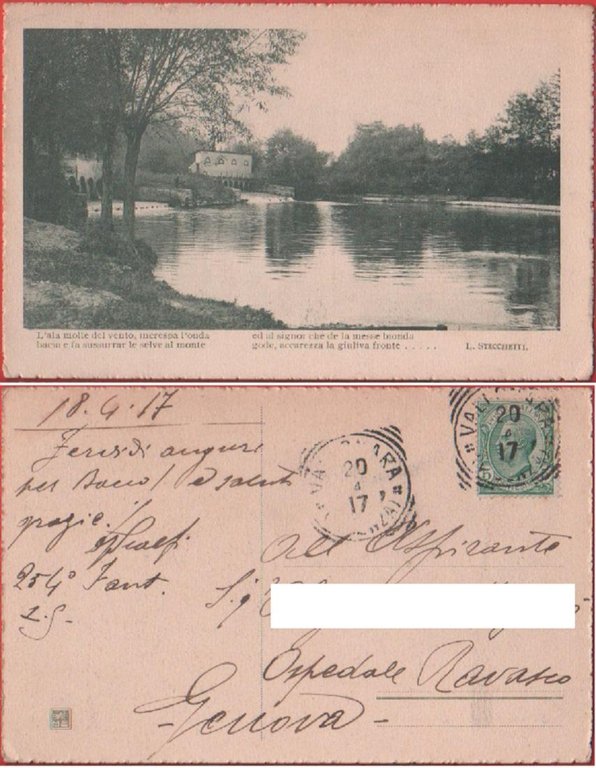 L'ala molle del vento, increspa l'onda
bacia e fa sussurrar le selve al monte
ed al signor che de la messe bionda
gode, accarezza la giuliva fronte . . . . .
L. STECCHETTI.
18.4.17
Fervidi auguri
per Bacco! e saluti
grazie.
254º Fant.
Z.G.
20
4
17
20
17
All' Aspirante
Sig
Ospedale Ravasco
- Genova -